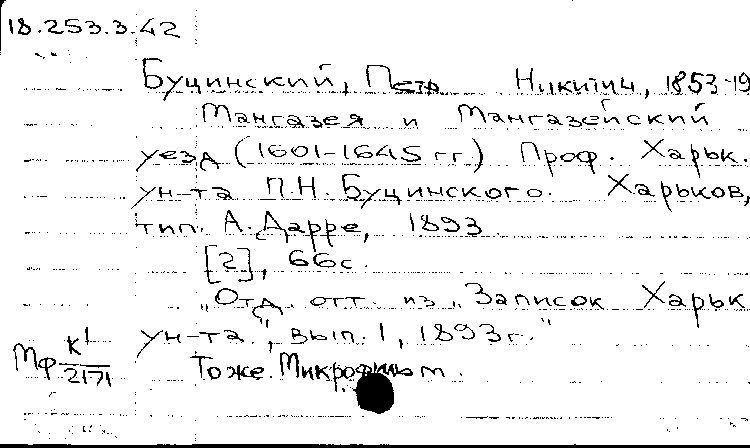 18.253.3.42
Буцинский, Петр Никитич, 1853-19
Мангазея и Мангазейский
уезд (1601-1645 гг.) Проф. Харьк.
ун-та П.Н. Буцинского. Харьков,
тип. А. Дарре, 1893.
[2], 66с.
"Отд. отт. из "Записок Харьк
ун-та", вып. 1, 1893г."
Мф К1/2171
Тоже. Микрофильм.